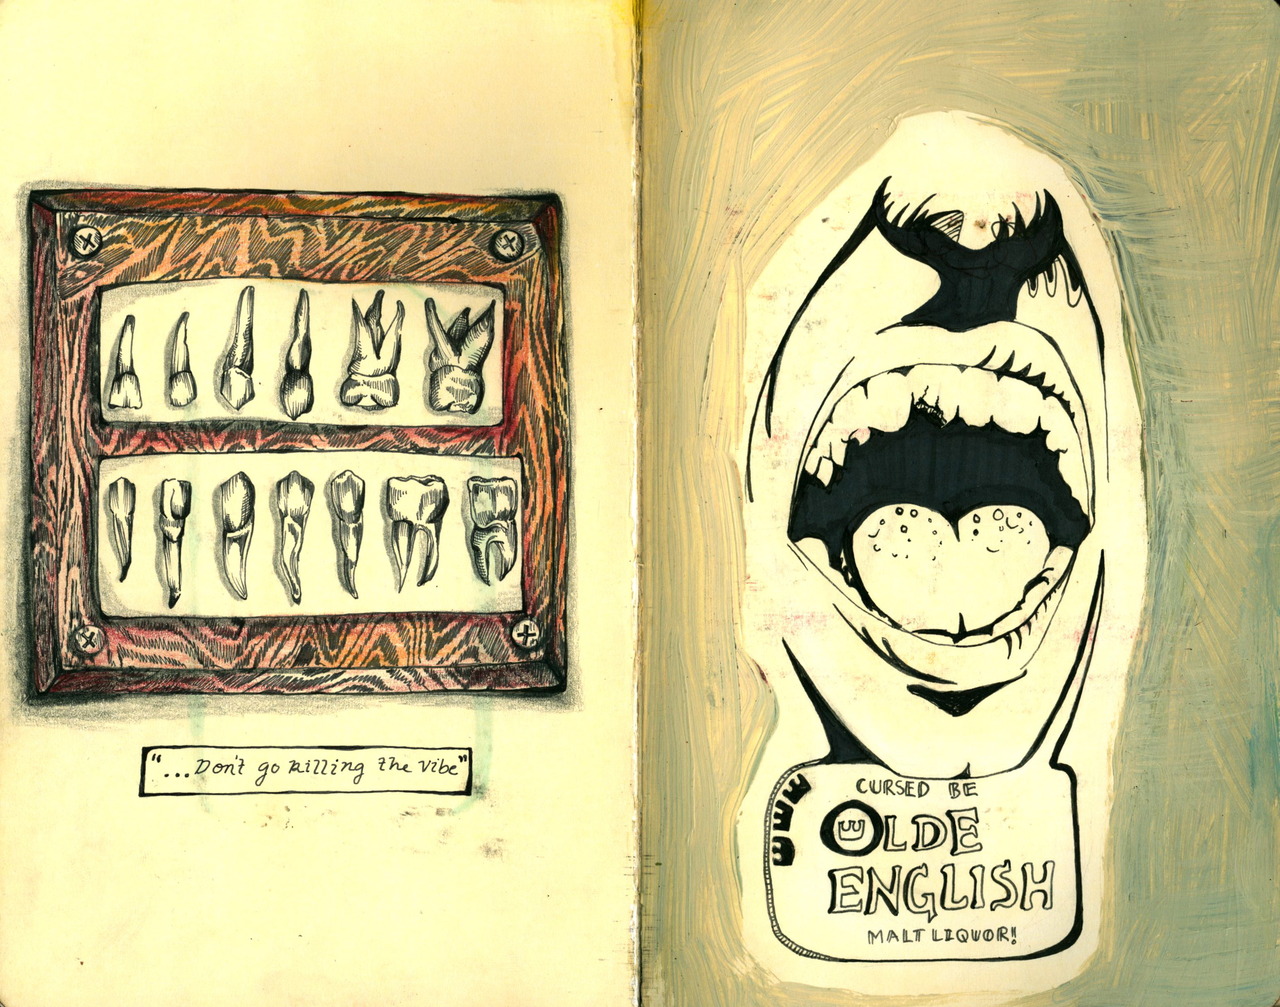 "...Don't go killing the vibe"
CURSED BE
OLDE
ENGLISH
MALT LIQUOR!